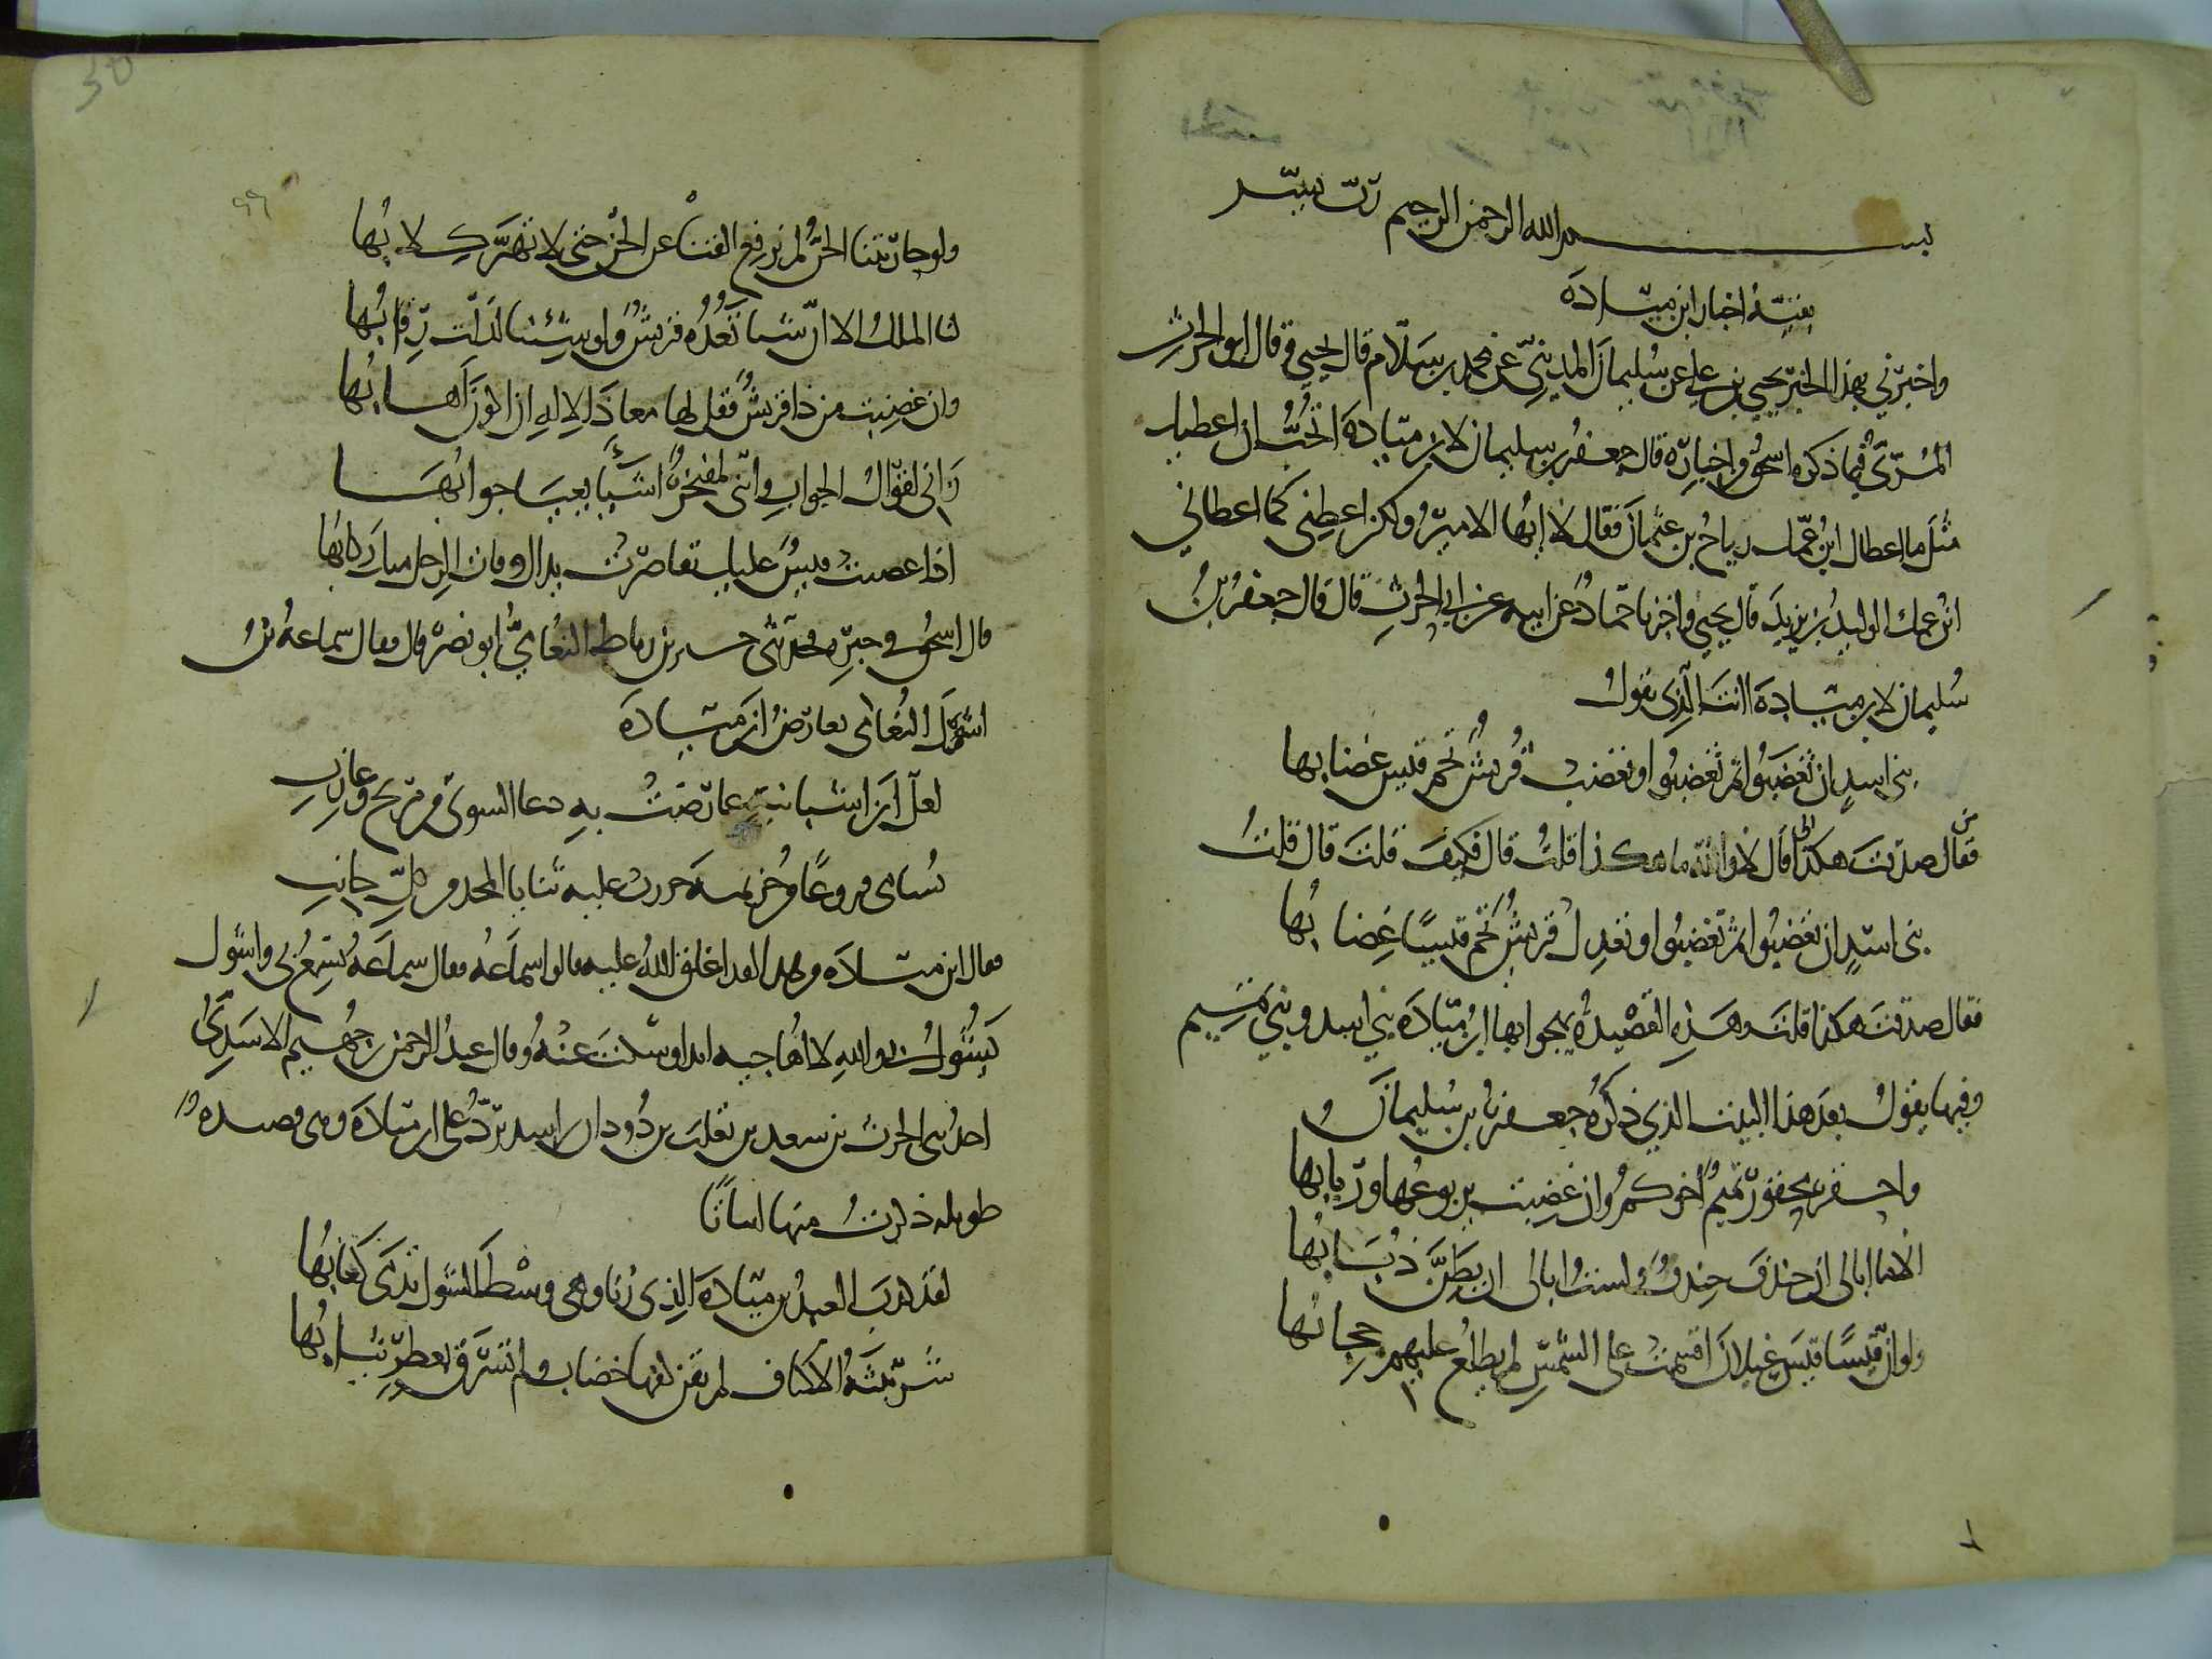 بسم الله الرحمن الرحيم رب يسر
بقية اخبار ابن ميادة
واخبرني بهذا الخبر يحيى بن علي عن سليمان المديني عن محمد بن سلام قال يحيى وقال ابو الحرث
المري فيما ذكره اسحق واخباره قال جعفر بن سليمان لابن ميادة اتحب ان اعطيك
مثل ما اعطاك ابن عمك رياح بن عثمان فقال لا ايها الامير ولكن اعطني كما اعطاني
ابن عمك الوليد بن يزيد قال يحيى واخبرنا حماد عن ابيه عن ابي الحرث قال قال جعفر بن
سليمان لابن ميادة اانت الذي تقول
بني اسد ان تغضبوا ثم تغضبوا وتغضب قريش تحم قيس غضابها
فقال صدقت هكذا قال لا والله ما هكذا قلت قال فكيف قلت قال قلت
بني اسد ان تغضبوا ثم تغضبوا وتعدل قريش تحم قيسا غضابها
فقال صدقت هكذا قلت وهذه القصيدة يهجوا بها ابن ميادة بني اسد وبني تميم
وفيها يقول بعد هذا البيت الذي ذكره جعفر بن سليمان
واحقر بمحقور تميم اخوكم وان غضبت يربوعها وربابها
الا ما ابالي ان تخندف خندف ولست ابالي ان يطن ذبابها
ولو ان قيسا قيس عيلان اقسمت على الشمس لم يطلع عليهم حجابها
ولو حاربتنا الجن لم نرفع القنا عن الجن حتى لا تهر كلابها
لنا الملك الا ان شيا تعده قريش ولو شئنا لذلت رقابها
وان غضبت من ذا قريش فقل لها معاذ الاله ان اكون اهابها
واني لقوال الجواب وانني لمفتخر اشيا يعيي جوابها
اذا غضبت قيس عليك تقاصرت يداك وفات الرجل منك ركابها
قال اسحق في خبره فحدثني جبر بن رباط النعامي ابو نصر قال فقال سماعة بن
اشول النعامي يعارض ابن ميادة
لعل ابن اشبانية عارضت به رعا الشوي من مريح وعازب
يسامي فروعا من خزيمة احرزت عليه ثنايا المجد من كل جانب
فقال ابن ميادة من هذا لقد اغلق الله عليه قالوا سماعة فقال سماعة يسمع بي واشول
يشول بي والله لا اهاجيه ابدا وسكت عنه وقال عبد الرحمن بن جهيم الاسدي
احد بني الحرث بن سعد بن ثعلبة بن دودان بن اسد يرد على ابن ميادة وهي قصيدة
طويلة ذكرت منها ابياتا
لقد كذب العبد بن ميادة الذي ربا وهي وسط الشول تدمى كعابها
شرنبثة الاكناف لم تقن كفها خضاب ولم تشرق بعطر ثيابها